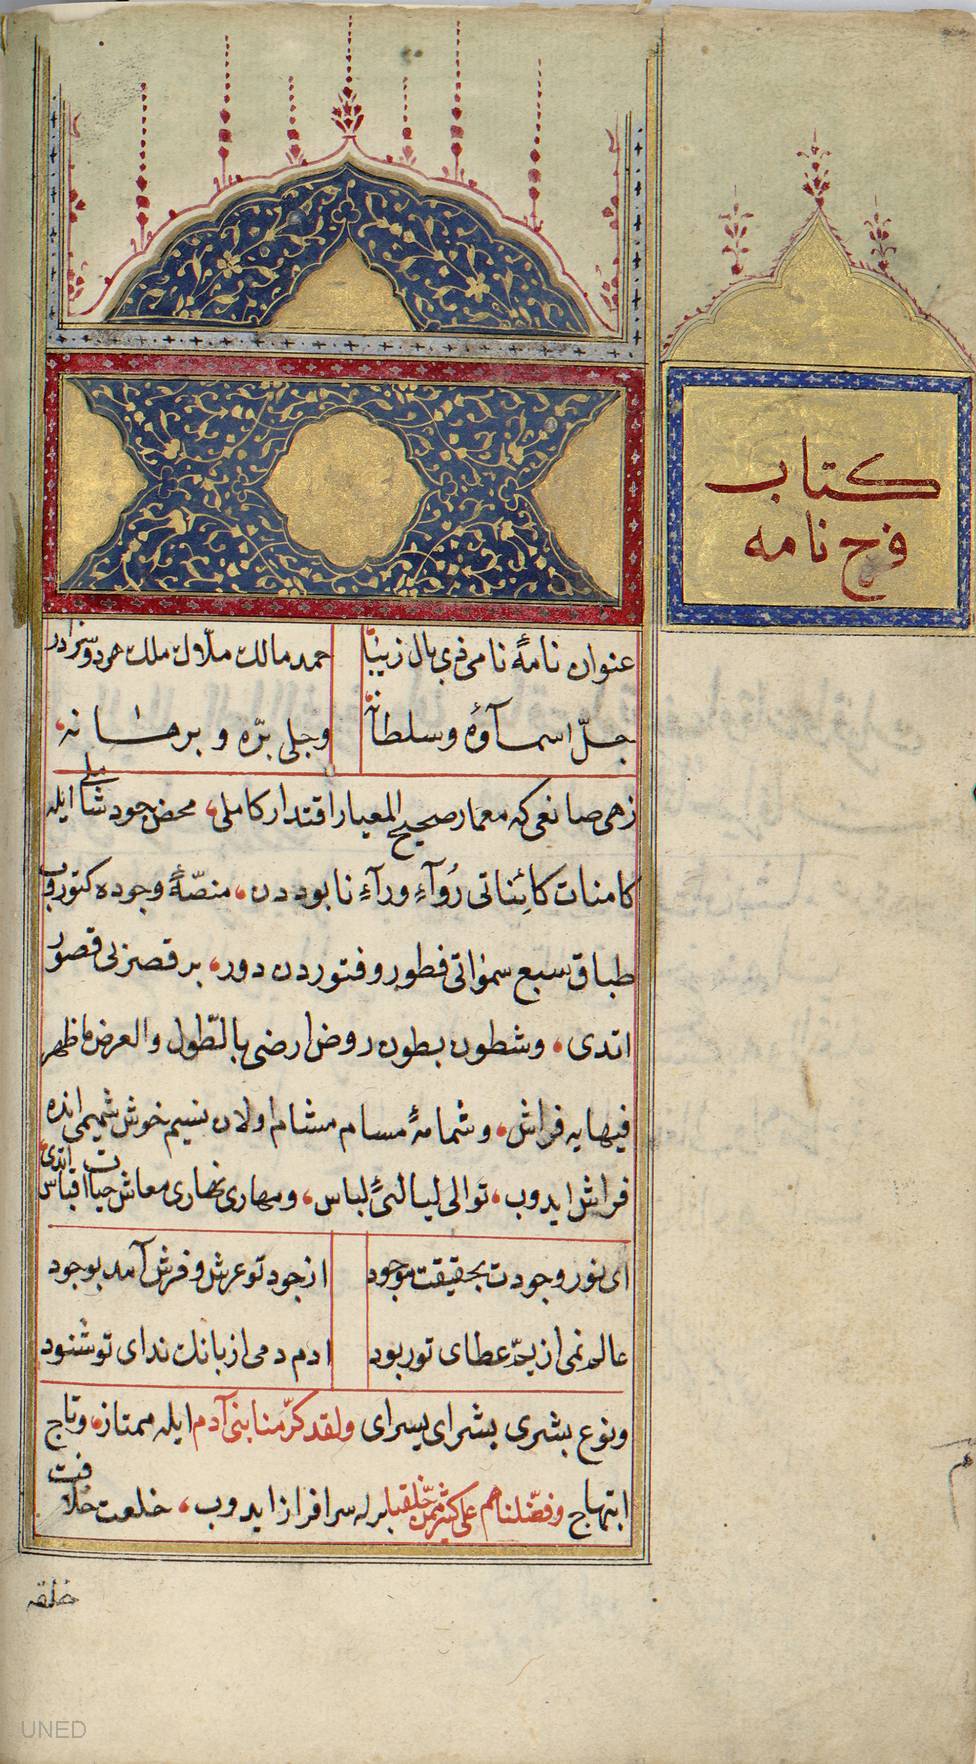 كتاب
فرح نامه
عنوان نامهٔ نامی فرّی بال زیبا حمد مالك ملّاك ملك هر دو سرادر
جلّ اسماؤه وسلطانه وجلی برّه و برهانه
زهی صانعی كه معمار صحیح المعیار اقتدار كاملی، محض جود شاملی ایله
كامنات كائناتی رُوآءِ ورآءِ نابوددن، منصّهٔ وجوده كتوروب
طباق سبع سمواتی فطور و فتوردن دور، بر قصر بی قصور
اتدی، وشطون بطون روض ارضی بالطّول والعرض ما ظهر
فیهایه فراش، وشمامهٔ مسام مشام اولان نسیم خوش شمیمی انده
فراش ایدوب، توالی لیالیئ لباس، ومهاری نهاری معاش حیات اقباس اتدی
ای نور وجودت بحقیقت موجود از جود تو عرش و فرش آمد بوجود
عالم نمی از یمّ عطای تو ربود ادم دمی از بانك ندای تو شنود
ونوع بشری بشرای یسرای ولقد كرّمنا بنی آدم ایله ممتاز، وتاج
ابتهاج وفضّلناهم علی كثیر ممّن خلقنا برله سرافراز ایدوب، خلعت خلافت
خلقه
UNED